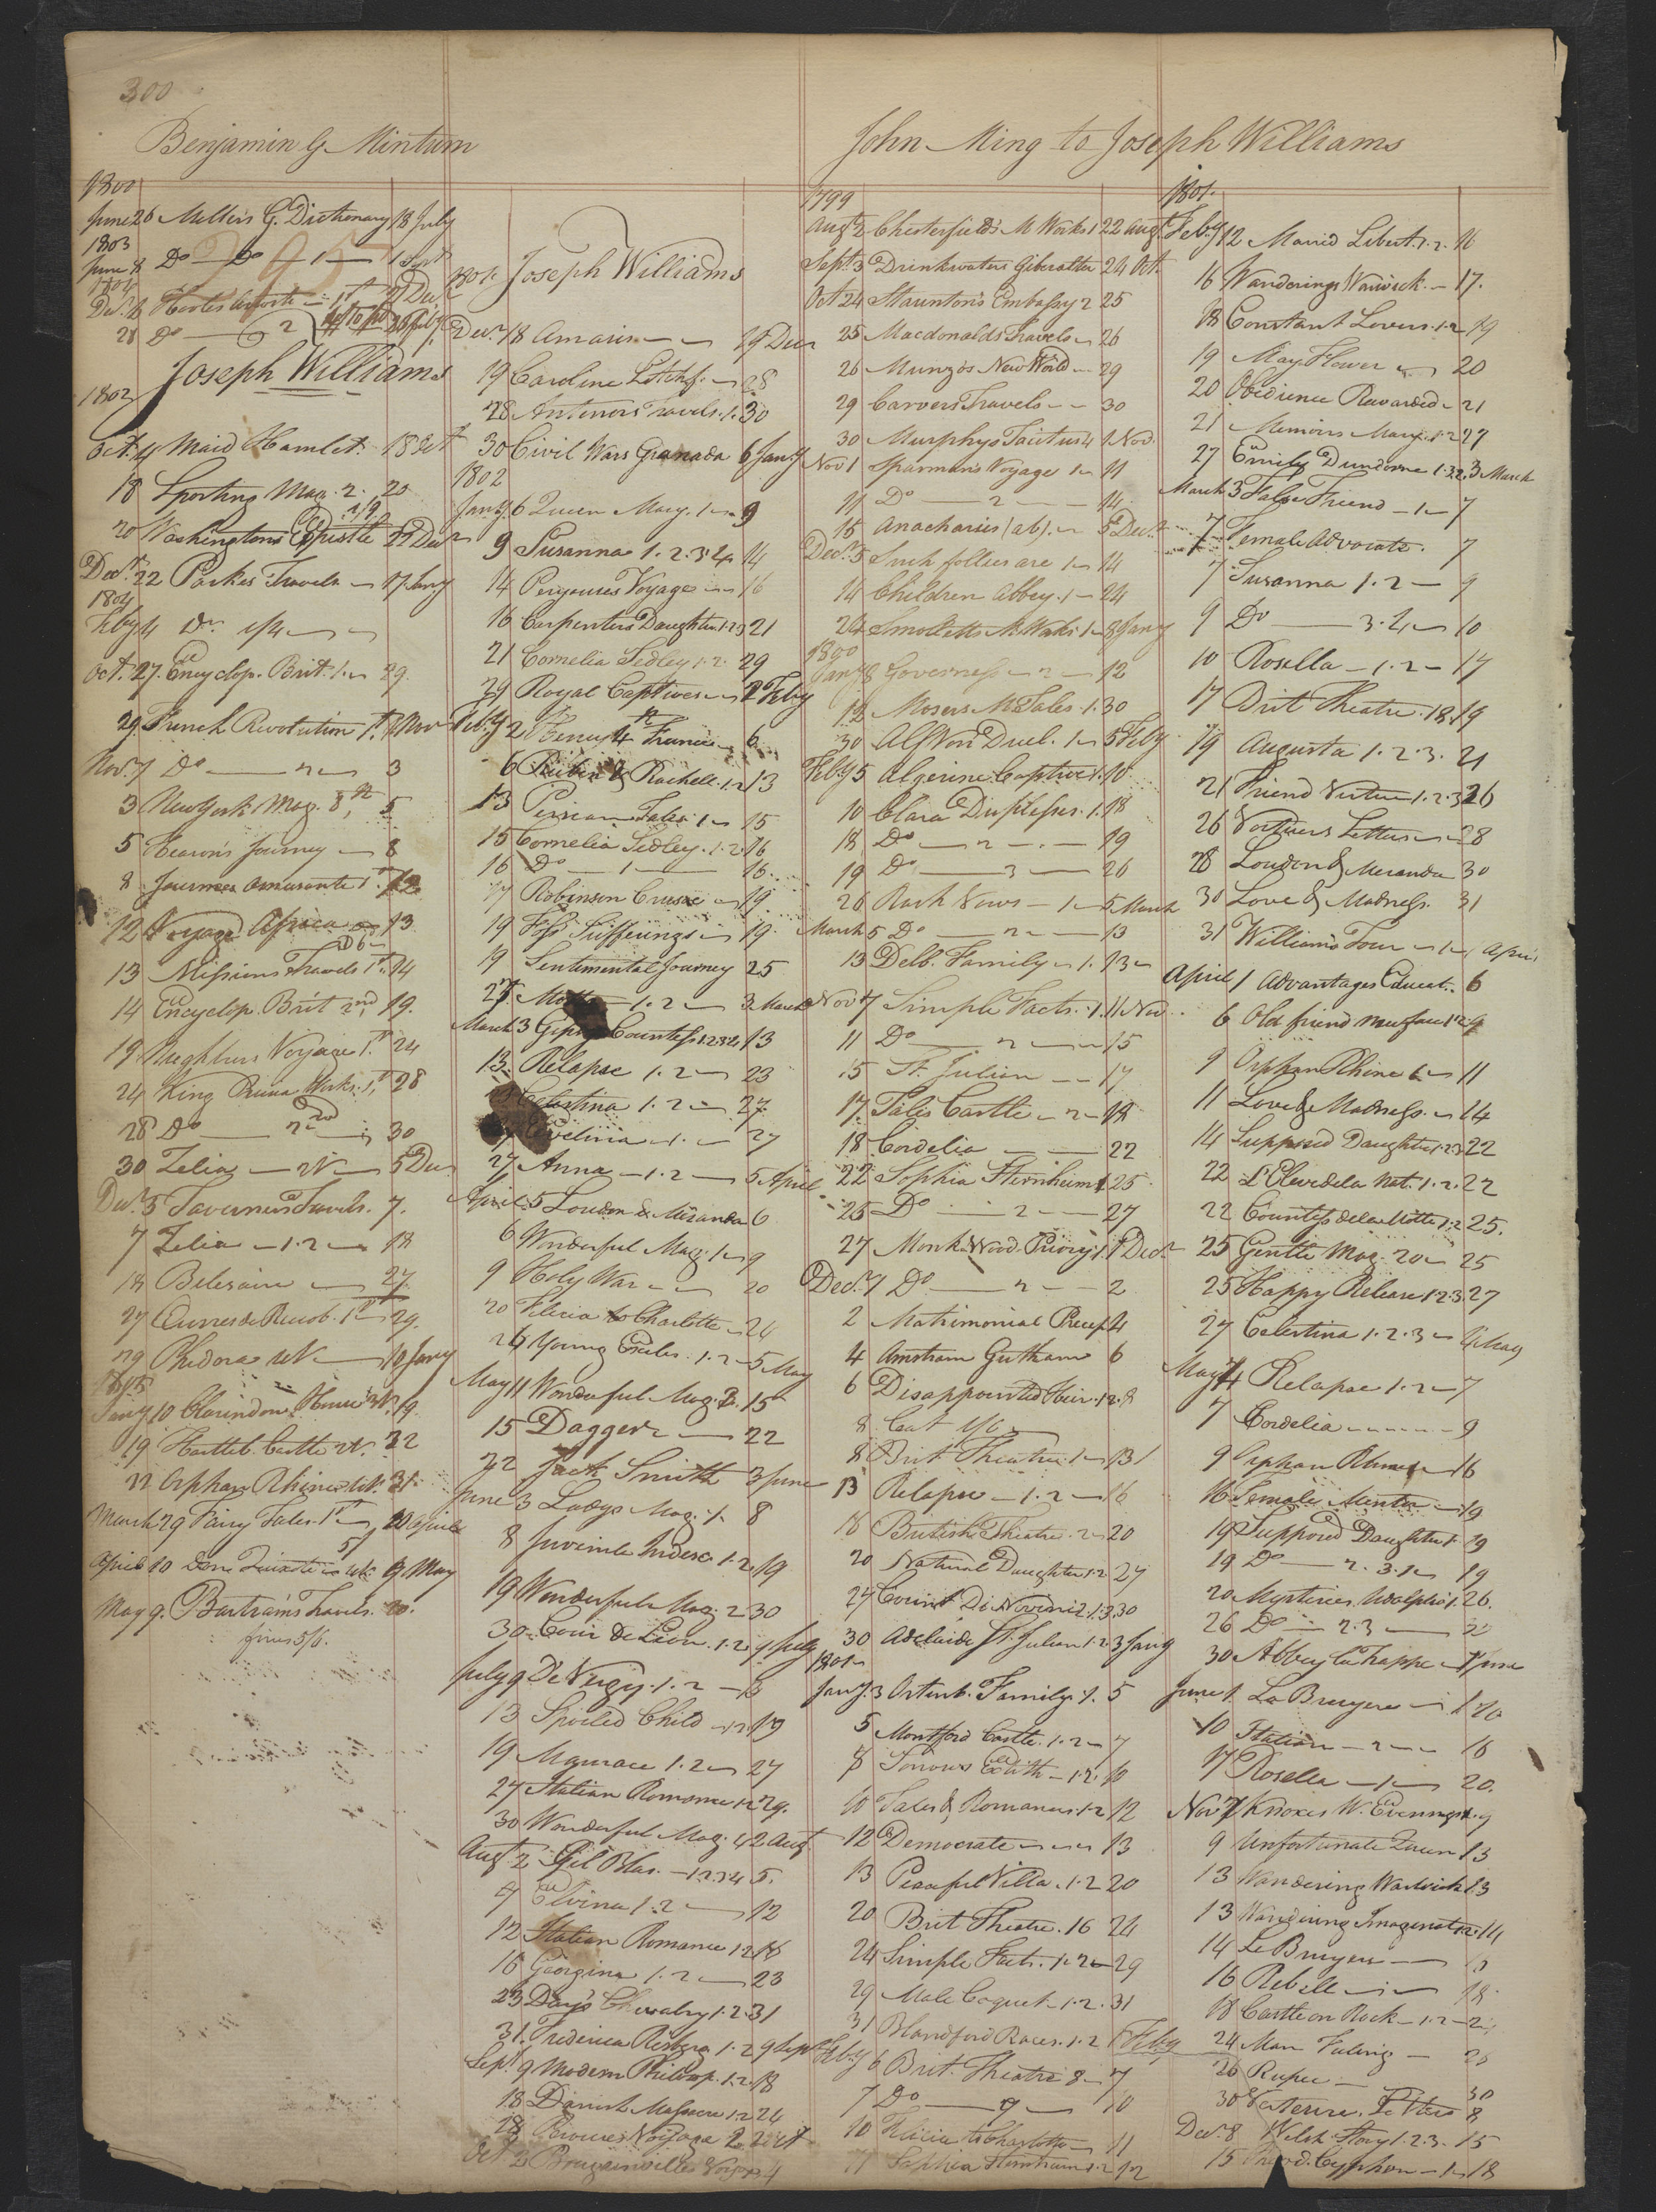 300
Benjamin G. Minturn
1800
June 26 Millers G. Dictionary 18 July
1803
June 8 Do Do 1 1 Sept
295
28 Do 2
Joseph Williams
1803
Oct. 14 Maid Hamlet 18 Oct
18 Sporting Mag. 2. 20
20 Washingtons Epistle 22 Decr
Decr. 22 Parkes Travels 17 Jany
1804
Feby 4 Do
Oct. 27 Encyclop. Brit. 1. 29.
29 French Revolution 1st. 7 Nov
Nov. 7 Do 2 3
3 New York Mag. 8th, 5
5 Hearons Journey 8
8 Journees Amusante 1st. 12
12 Voyage Africa 13
13 Missions Travels 1st. 14
14 Encyclop. Brit 2nd, 19.
19 Voyage 1st 24
24 King Prussia Works. 1st 28
28 Do 2nd 30
30 Zelia 5 Decr
Decr. 5 Taverniers Travels. 7.
7 Zelia 1.2 18
18 Belisaire 27.
27 1st 29.
29 Phedora 10 Jany
1805
Jany 10 Clarindon House 19.
19 Castle 22
22 Orphan Rhine 31.
March 29 Fairy Tales. 1st 10 April
April 10 Don Quixotte 9 May
May 9. Bartrams Travels. 20.
fines 5/6.
1801. Joseph Williams
Decr. 18 Amaies 19 Decr
19 Caroline Litchf. 28
28 Antenors Travels. 1. 30
30 Civil Wars Granada 6 Jany
1802
Jany 6 Queen Mary. 1 9
9 Susanna 1.2.3.4 14
14 Perouses Voyage 16
16 Carpenters Daughter 1.2.3 21
21 Cornelia Sedley 1.2. 29
29 Royal Captives 2 Feby
Feby 2 Henry 4th France 6
6 Ruben & Rachell. 1.2 13
13 Persian Tales 1 15
15 Cornelia Sedley. 1.2. 16
16 Do 1 16.
17 Robinson Crusoe 19.
19 Foss Sufferings 19.
19 Sentimental Journey 25
1.2 3 March
March 3 Gipsy Countess 1.2.3.4 13
13 Relapse 1.2 23
Celestina 1.2 27
Evelina 1. 27
27 Anna 1.2 5 April
April 5 Louden & Miranda 6
6 Wonderful Mag. 1 9
9 Holy War 20
20 Felicia to Charlotte 24
24 Young Exiles. 1.2 5 May
May 11 Wonderful Mag. 2. 15
15 Dagger 22
22 Jack Smith 3 June
June 3 Ladys Mag. 1. 8
8 Juvenile Indesc. 1.2. 19
19 Wonderful Mag. 2 30
30 Coeur de Lion. 1.2 9 July
July 9 De Vergy. 1.2 13
13 Spoiled Child 1.2 19
19 1.2 27
27 Italian Romance 1.2 29.
30 Wonderful Mag. 4 2 Augt
Augt. 2 Gil Blas. 1.2.3.4 5.
7 Elvina 1.2 12
12 Italian Romance 1.2 16
16 Georgina 1.2 23
23 Days Chivalry 1.2. 31
31. Frederica Risberg 1.2 9 Sept
Sept 9 Modern Philosop. 1.2. 18
18 Danish Massacre 1.2 24
28 Perouses Voyage 2. 2 Oct
Oct 2 Bougainvilles Voyage 4
John Ming to Joseph Williams
1799
Augt. 2 Chesterfields M Works 1 22 Augt.
Sept. 3 Drinkwaters Gibralter 24 Oct.
Oct 24 Stauntons Embassy 2 25
25 Macdonalds Travels 26
26 Munzos New World 29
29 Carvers Travels 30
30 Murphys Tacitus 4 1 Nov.
Nov 1 Sparmans Voyage 1 11
11 Do 2 14.
15 Anacharsis (ab). 5 Decr.
Decr. 5 Such follies are 1 14
14 Children Abbey. 1 24
24 Smolletts M. Works. 1 8 Jany
1800
Jany 8 Governess 2 12
12 Mosers M. Tales. 1. 30
30 Alf Von Duel. 1 5 Feby
Feby 5 Algerine Captive 1. 10
10 Clara Duplessis. 1. 18
18 Do 2 19
19 Do 3 26
26 Rash Vows 1 5 March
March 5 Do 2 13
13 Delb. Family 1. 13
Nov 7 Simple Facts. 1. 11 Nov
11 Do 2 15
15 St. Julien 17
17. Tales Castle 2 18
18 Cordelia 22
22 Sophia Sternheim 1 25
25 Do 2 27
27 Monk Wood Priory 1. 1 Decr
Decr. 1 Do 2 2
2 Matrimonial Precep 4
4 Amstram Gutham 6
6 Disappointed Heir. 1.2. 8
8 Cat 1/6
8 Brit Theatre. 1 13
13 Relapse 1.2 16
16 British Theatre. 2 20
20 Natural Daughter 1.2 27
27 Count Di Novini 2.1.3. 30
30 Adelaide St. Julian 1.2 3 Jany
1801
Jany. 3 Ortenb. Family. 1. 5
5 Montford Castle. 1.2 7
8 Sorrows Edith 1.2. 10
10 Tales & Romances. 1.2 12
12 Democrate 13
13 Peaceful Villa. 1.2 20
20 Brit Theatre. 16 24
24 Simple Facts. 1.2 29
29 Male Coquet. 1.2. 31
31 Blandford Races. 1.2 6 Feby
Feby 6 Brit. Theatre 8 7
7 Do 9 10
10 Felicia to Charlotte 11
11 Sophia Sternheim 1.2 12
1801.
Feby 12 Marrid Libert. 1.2. 16
16 Wanderings Warwick 17.
18 Constant Lovers. 1.2 19
19 May Flower 20
20 Obedience Rewarded 21
21 Memoirs Mary. 1.2 27
27 Emily Dundorne 1.2 3 March
March 3 False Friend 1 7
7 Female Advocate. 7
7 Susanna 1.2 9
9 Do 3.4 10
10 Rosella 1.2 17
17 Brit Theatre. 18. 19
19 Augusta 1.2.3. 21
21 Friend Virtue 1.2.3 26
26 Vortuers Letters 28
28 Louden & Meranda 30
30 Love & Madness. 31
31 Williams Tour 1 April
April 1 Advantages Educat. 6
6 Old friend new face 1.2. 9
9 Orphan Rhine 11
11 Love & Madness. 14
14 Supposed Daughter 1.2.3 22
22 L'Eleve de la Nat. 1.2. 22
22 Countess de la Motte 1.2 25.
25 Gentle Mag. 20 25
25 Happy Release 1.2.3. 27
27 Celestina 1.2.3 4 May
May 4 Relapse 1.2 7
7 Cordelia 9
9 Orphan Rhine 16
16 Female Mentor 19
19 Supposed Daughter 1. 19
19 Do 2.3. 19
20 Mysteries Udolpho 1. 26.
26 Do 2.3 30
30 Abbey La Trappe 1 June
June 1 La Bruyere 10
10 Station 2 16
17 Rosella 1 20.
Nov 7 Knoxes W. Evenings 1. 9
9 Unfortunate Queen 13
13 Wandering Warwick 13
13 Wandering Imaginat. 1.2. 14
14 La Bruyere 16
16 Rebell 18
18 Castle on Rock 1.2 24
24 Man Feeling 26
26 Rupee 30
30 Letters 8
Decr. 8 Welsh Story 1.2.3. 15
15 Theod. Cyphon 1 18